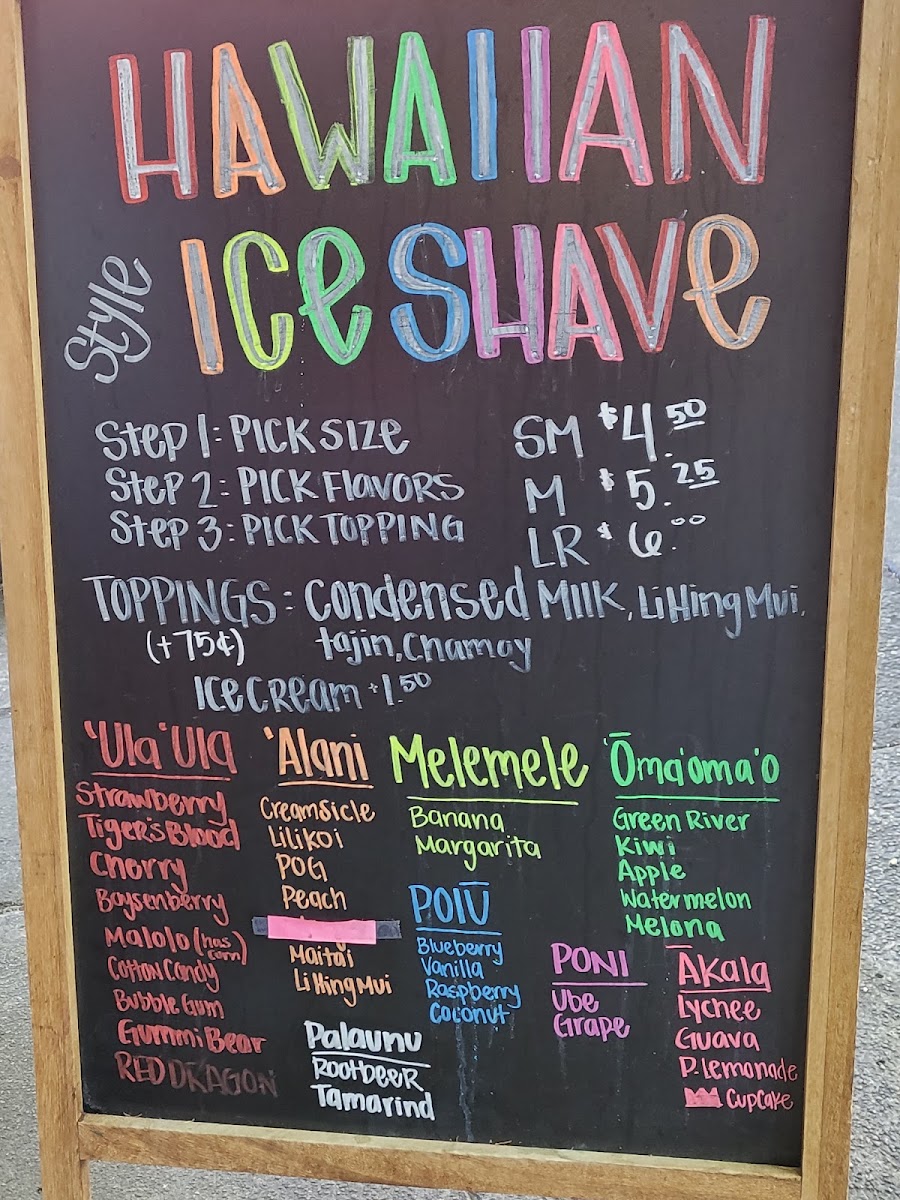 HAWAIIAN
Style
ICE SHAVE
Step 1: PICK SIZE
Step 2: PICK FLAVORS
Step 3: PICK TOPPING
SM $4.50
M $5.25
LR $6.00
TOPPINGS: Condensed Milk, Li Hing Mui,
(+75¢) tajin, Chamoy
ICE CREAM +1.50
'Ula'Ula
Strawberry
Tiger's Blood
Cherry
Boysenberry
Malolo (has corn)
Cotton Candy
Bubble Gum
Gummi Bear
RED DRAGON
'Alani
Creamsicle
Lilikoi
POG
Peach
Maitai
Li Hing Mui
Palaunu
Rootbeer
Tamarind
Melemele
Banana
Margarita
POLŪ
Blueberry
Vanilla
Raspberry
Coconut
'Ōma'oma'o
Green River
Kiwi
Apple
Watermelon
Melona
PONI
Ube
Grape
Ākala
Lychee
Guava
P. lemonade
Cupcake